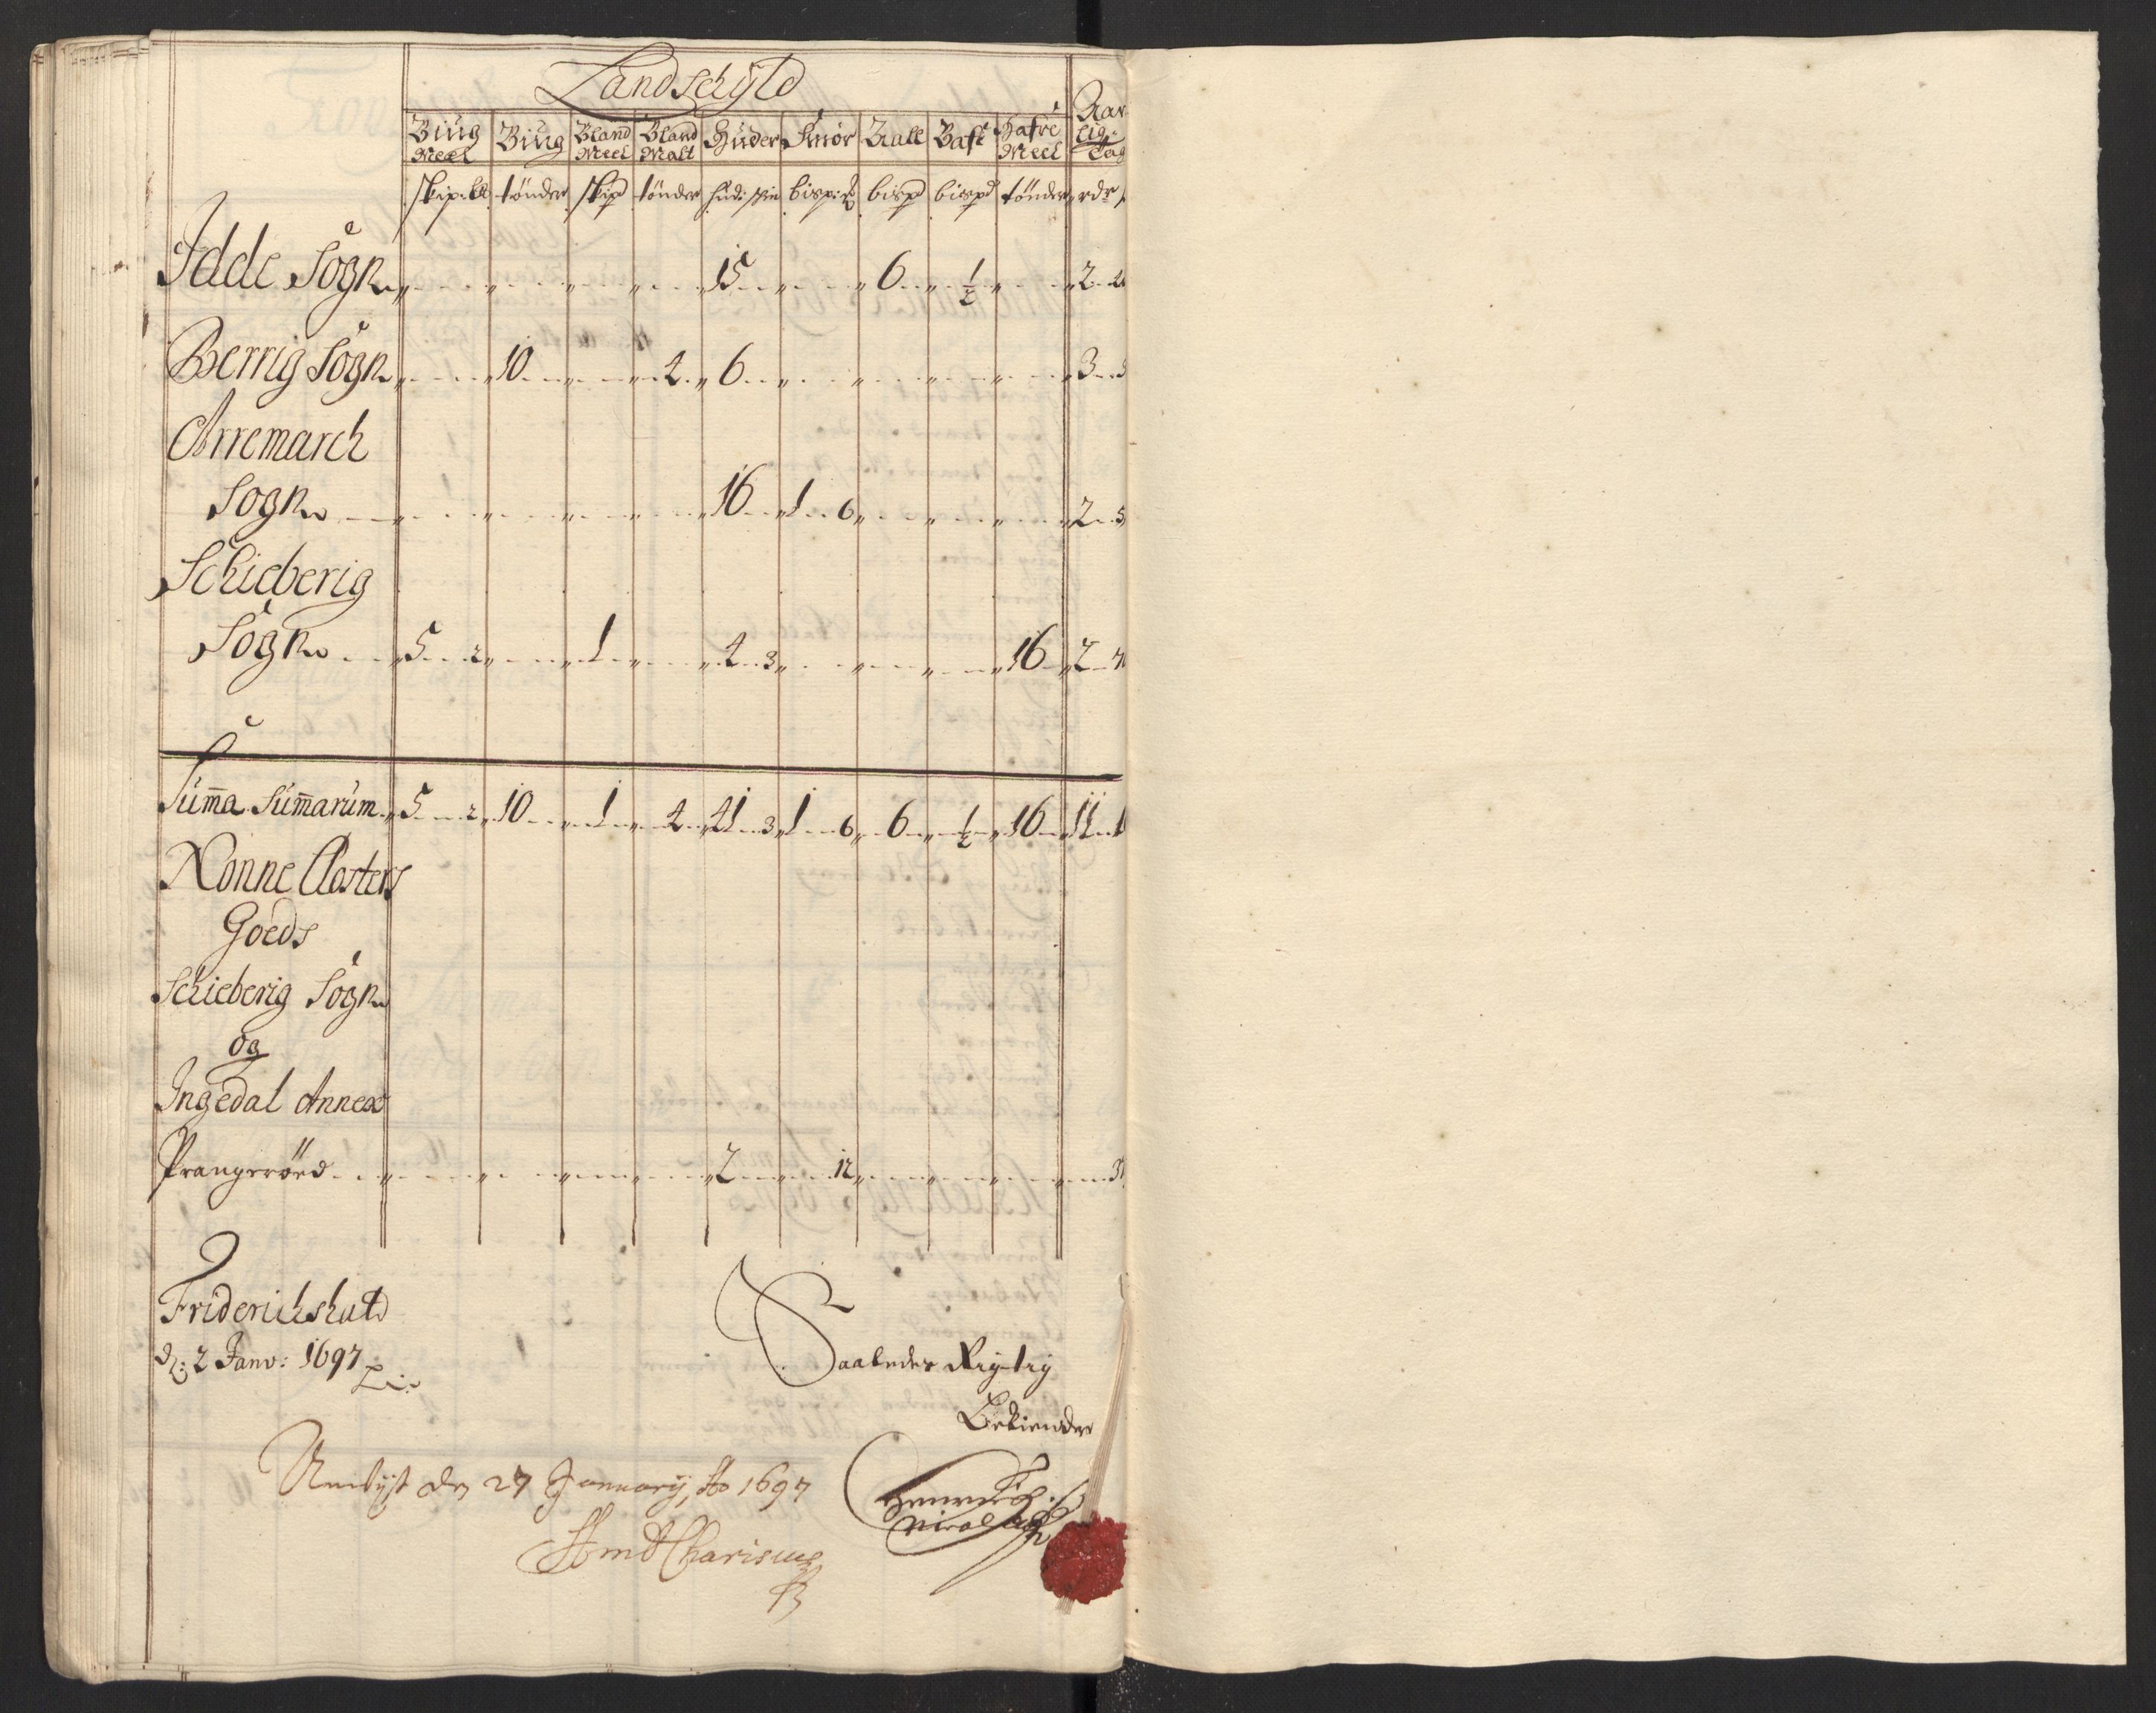 Landschyld
Biug Meel | Biug | Bland Meel | Bland Malt | Huder | Smör | Kall | Bast | Hafre Meel | Aar lig
skip: | tönder | skip | tönder | hud: skin | bisp: | bisp | bisp | tönder | rdr
Idde Sogn 15 6 ½ 2
Berrig Sogn 10 2 6 3
Arremarch
Sogn 16 1 6 2
Schieberig
Sogn 5 2 1 4 3 16 2
Sum̄a Sum̄arum 5 2 10 1 2 41 3 1 6 6 ½ 16 11
Nonne Closters
Goeds
Schieberig Sogn
og
Ingedal Annex
Prangeröed 2 12
Friderichshald
d: 2 Janv: 1697
Saaledes Rigtig
Bekiender
den 27 January, Ao 1697